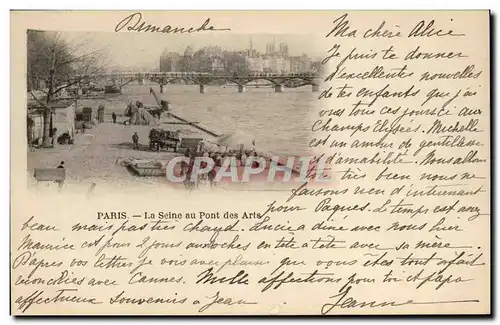 Dimanche
Ma chère Alice
Je puis te donner
d'excellentes nouvelles
de tes enfants que je
vois tous ces jours ci aux
Champs Elysées. Michelle
est un amour de gentillesse
et d'amabilité. Nous allons
très bien nous ne
faisons rien d'intéressant
CPArama
PARIS. - La Seine au Pont des Arts
pour Paques. Le temps est assez
beau mais pas très chaud. Lucie a dîné avec nous hier
Maurice est pour 2 jours aux Roches en tête à tête avec sa mère.
D'après vos lettres je vois avec plaisir que vous êtes tout à fait
réconciliés avec Cannes. Mille affections pour toi et papa
affectueux souvenirs à Jean
Jeanne